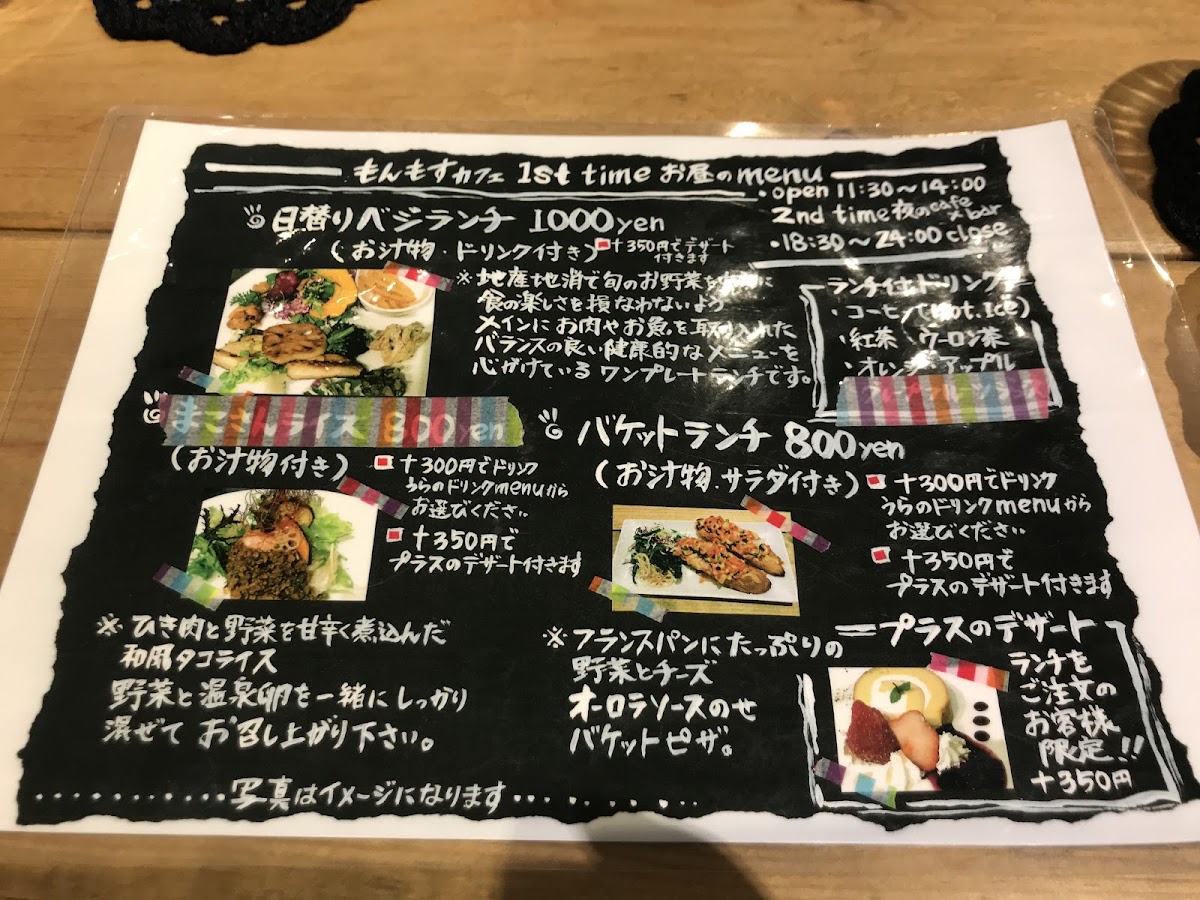 もんもすカフェ 1st time お昼のmenu
・open 11:30～14:00
2nd time 夜のcafe×bar
・18:30～24:00 close
日替りベジランチ 1000yen
(お汁物・ドリンク付き)
+350円でデザート
付きます
※地産地消で旬のお野菜を
食の楽しさを損なわないよう
メインにお肉やお魚を取り入れた
バランスの良い健康的なメニューを
心がけているワンプレートランチです。
ランチ付ドリンク
・コーヒー(Hot.Ice)
・紅茶・ウーロン茶
・オレンジ・アップル
まこさんライス 800yen
(お汁物付き)
+300円でドリンク
うらのドリンクmenuから
お選びください
+350円で
プラスのデザート付きます
※ひき肉と野菜を甘辛く煮込んだ
和風タコライス
野菜と温泉卵を一緒にしっかり
混ぜてお召し上がり下さい。
バケットランチ 800yen
(お汁物.サラダ付き)
+300円でドリンク
うらのドリンクmenuから
お選びください
+350円で
プラスのデザート付きます
※フランスパンにたっぷりの
野菜とチーズ
オーロラソースのせ
バケットピザ。
プラスのデザート
ランチを
ご注文の
お客様
限定!!
+350円
写真はイメージになります